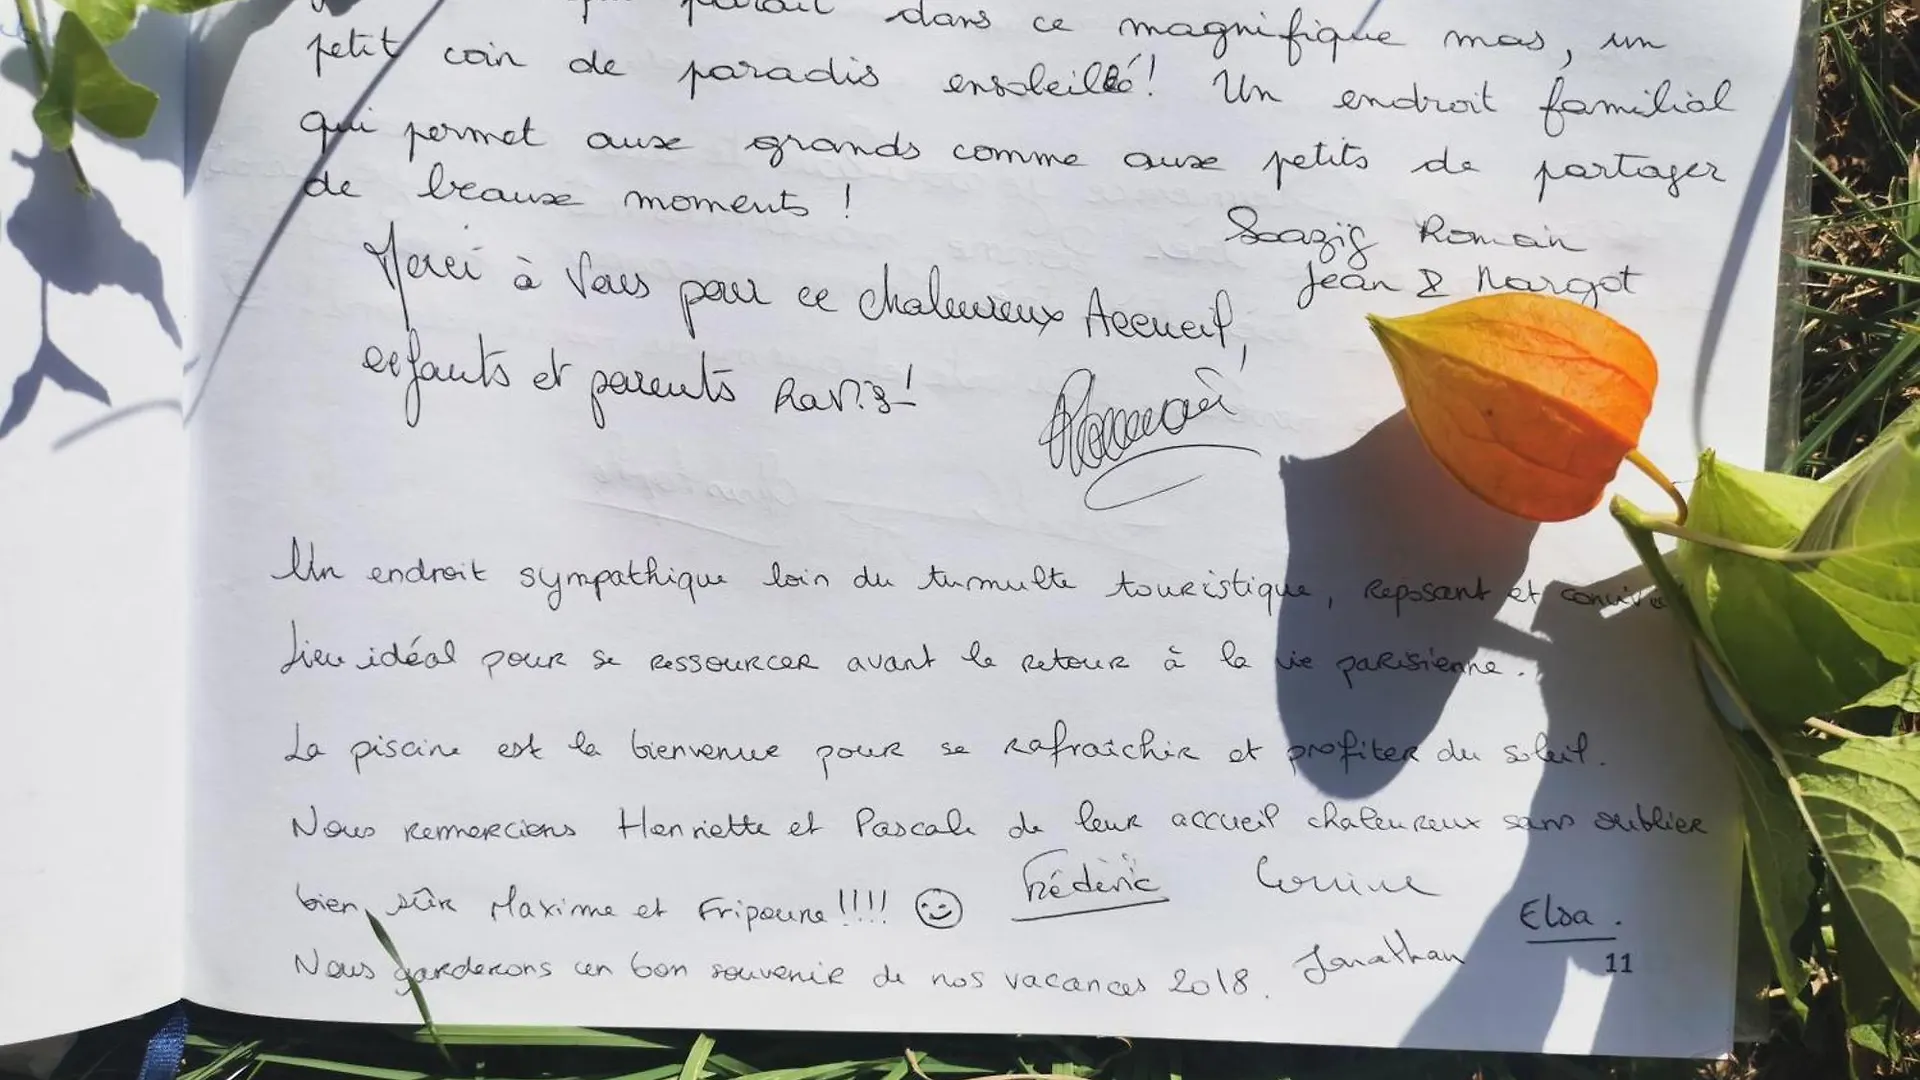 dans ce magnifique mas, un
petit coin de paradis ensoleillé! Un endroit familial
qui permet aux grands comme aux petits de partager
de beaux moments !
Soazig Romain
Jean & Margot
Merci à Vous pour ce chaleureux Accueil,
enfants et parents Ravis!
Romain
Un endroit sympathique loin du tumulte touristique, Reposant et
Lieu idéal pour se ressourcer avant le retour à la vie parisienne.
La piscine est la bienvenue pour se rafraîchir et profiter du soleil.
Nous remercions Henriette et Pascale de leur accueil chaleureux sans oublier
bien sûr Maxime et Fripoune !!!! ☺ Frédéric Corine
Elsa.
Nous garderons un bon souvenir de nos vacances 2018. Jonathan
11